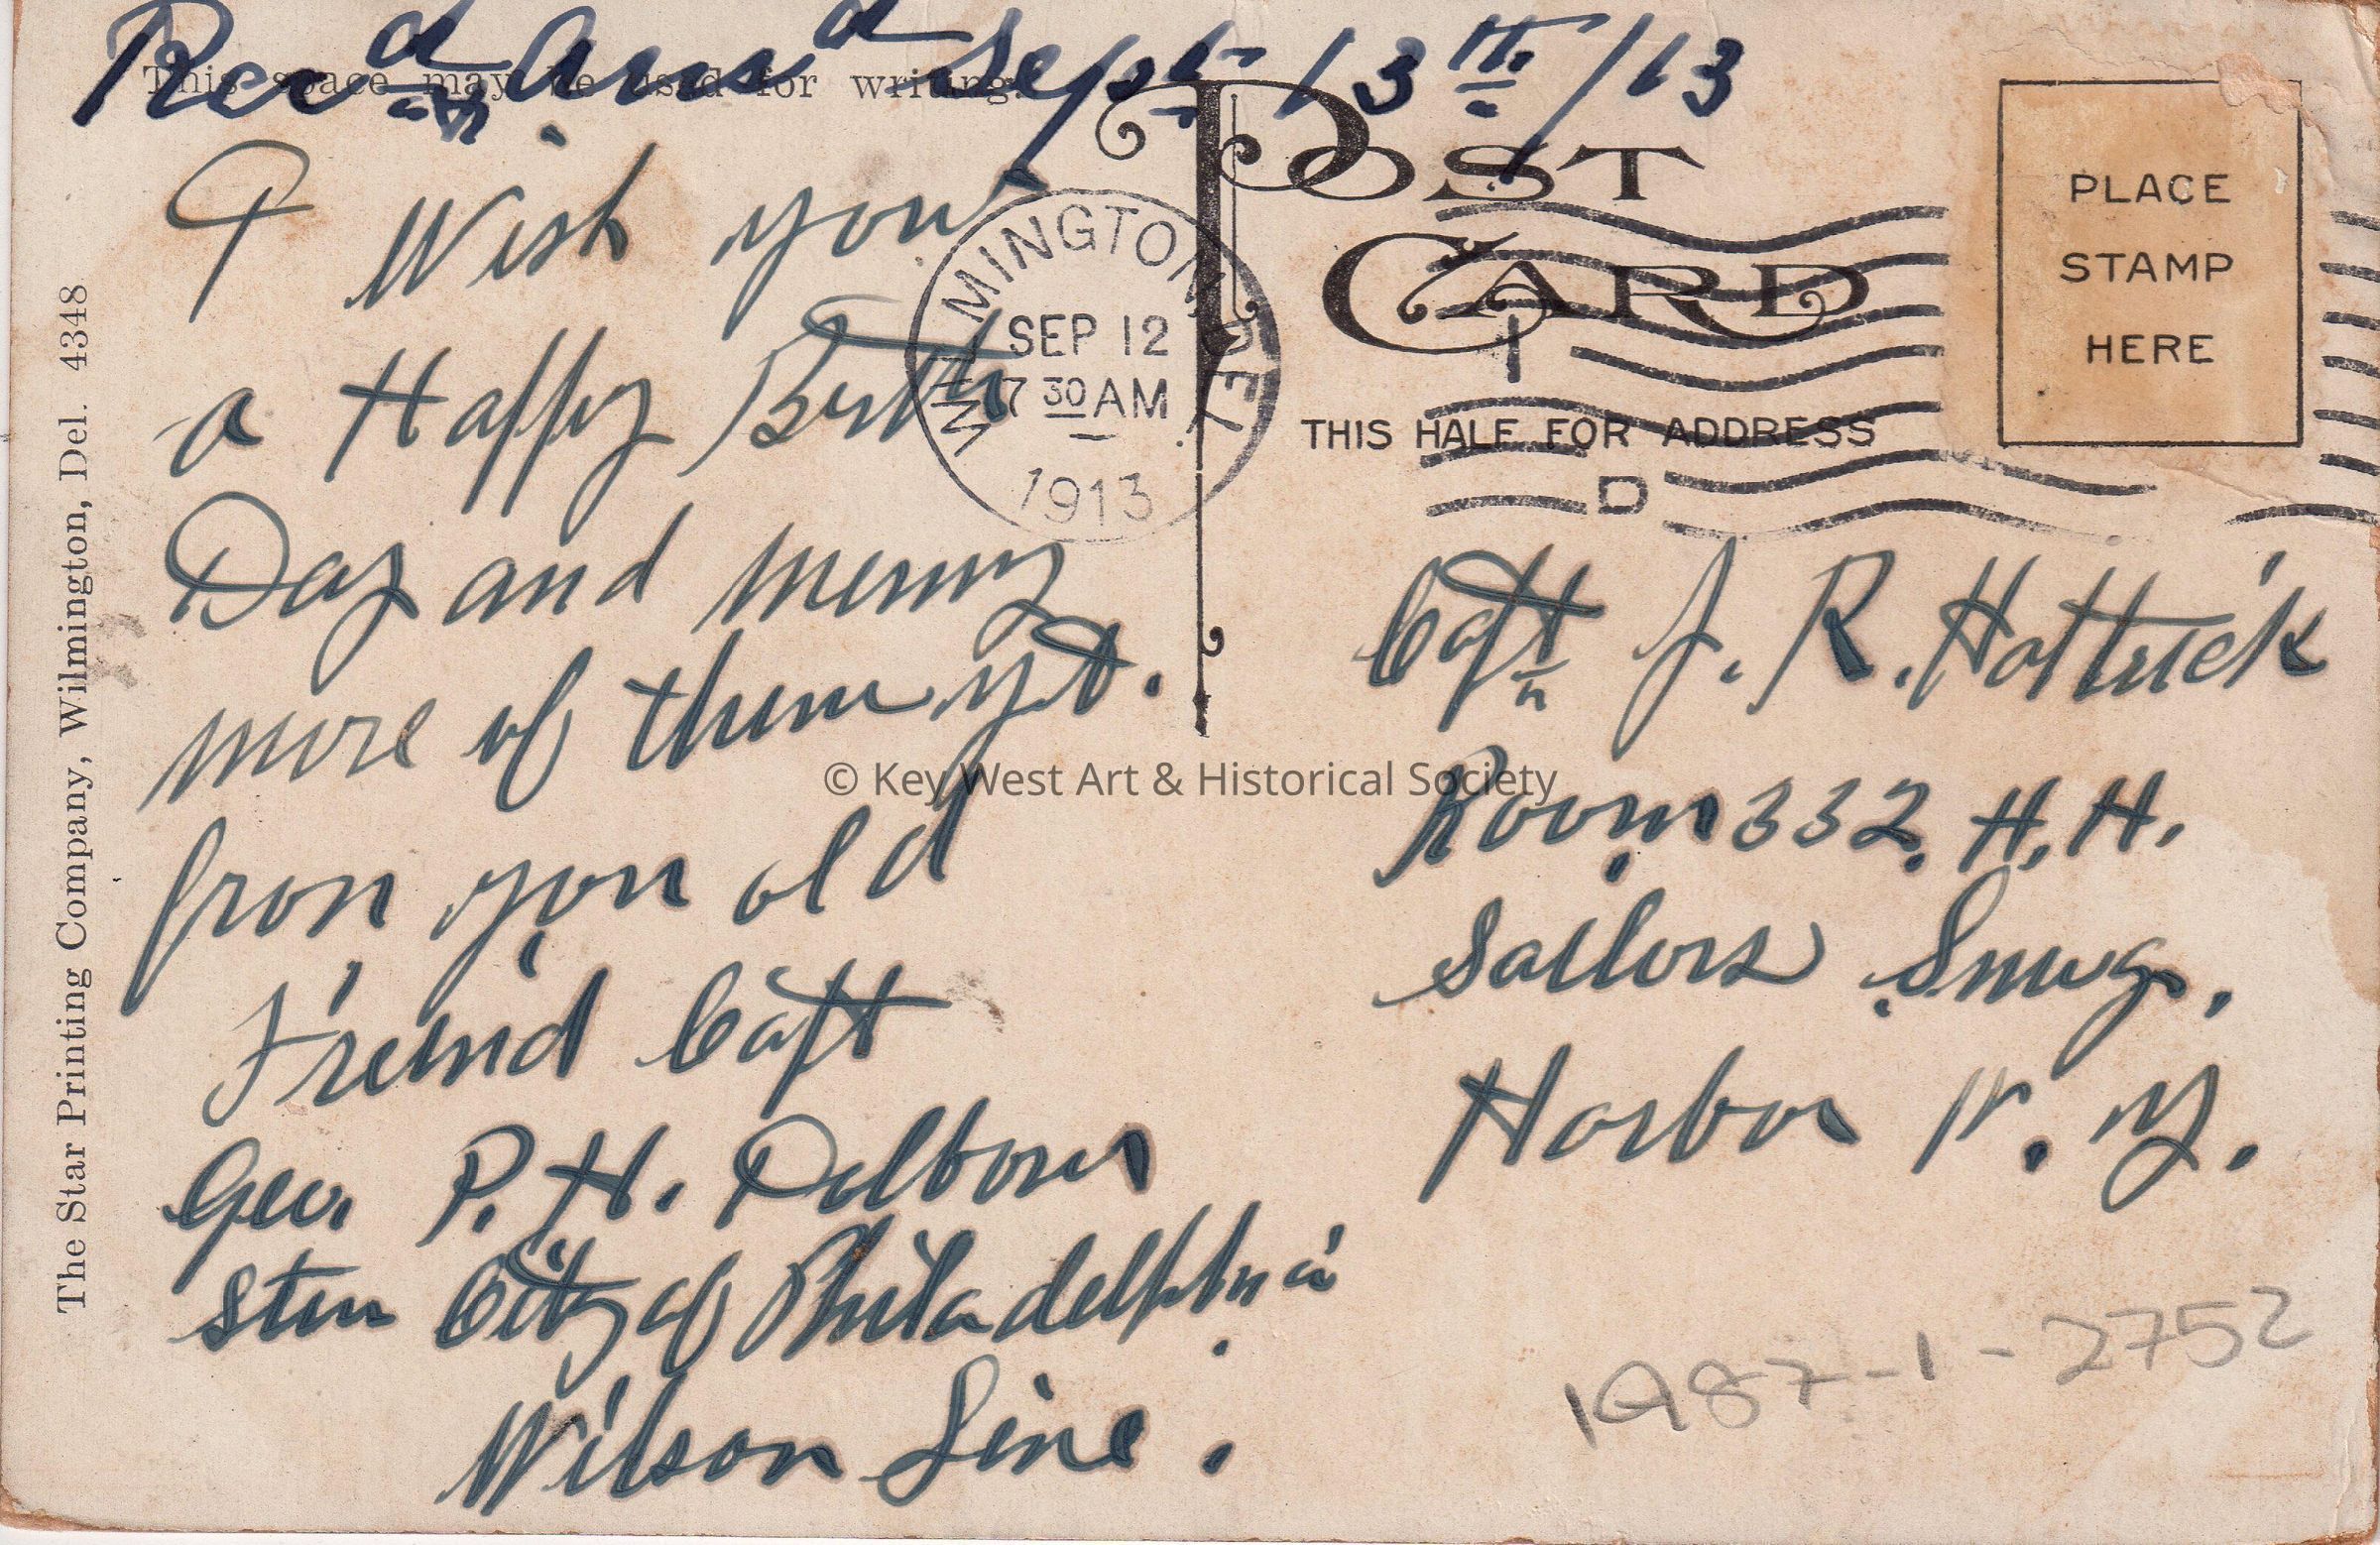 Rec'd & Ans'd Sept 13th/13
This space may be used for writing.
POST
CARD
PLACE
STAMP
HERE
WILMINGTON DEL.
SEP 12
7 30 AM
1913
THIS HALF FOR ADDRESS
D
I Wish you
a Happy Birth
Day and menny
more of them yet.
fron you old
Freind Capt
Geo. P. H.
Stm City of Philadelphia.
Wilson Line.
Captn J. R. Hottrick
Room 332. H. H.
Sailors Snug.
Harbor N. Y.
1987-1-2752
The Star Printing Company, Wilmington, Del. 4348
© Key West Art & Historical Society